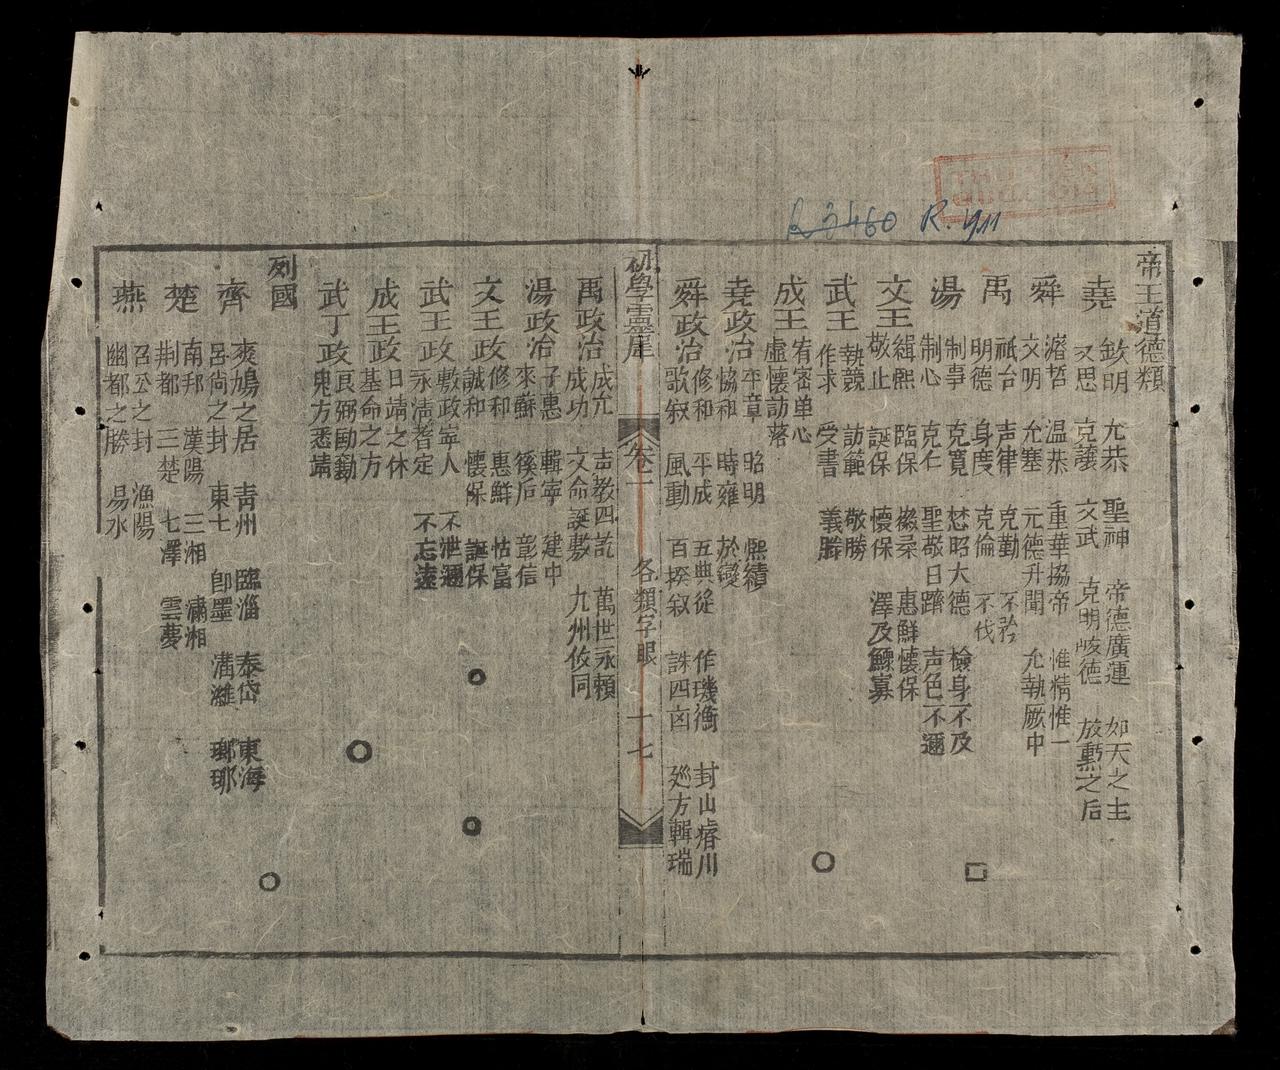 R 3460 R. 911
帝王道德類
堯 欽明 允恭 聖神 帝德廣運 如天之主
文思 克讓 文武 克明峻德 放勳之后
舜 濬哲 温恭 重華協帝 惟精惟一
文明 允塞 元德升聞 允執厥中
禹 祗台 声律 克勤 不矜
明德 身度 克倫 不伐
湯 制事 克寬 慭昭大德 檢身不及
制心 克仁 聖敬日躋 声色不邇
文王 緝熙 臨保 徽柔 惠鮮懷保
敬止 誕保 懷保 澤及鰥寡
武王 執競 訪範 敬勝
作求 受書 義勝
成王 宥密单心
虛懷訪落
堯政治 平章 昭明 熙績
協和 時雍 於變
舜政治 修和 平成 五典從 作璣衡 封山濬川
歌叙 風動 百揆叙 誅四凶 廵方輯瑞
初學靈犀 卷一 各類字眼 十七
禹政治 成允 声教四訖 萬世永賴
成功 文命誕敷 九州攸同
湯政治 子惠 輯寧 建中
來蘇 徯后 彰信
文王政 修和 惠鮮 怙富
諴和 懷保 誕保
武王政 敷政寧人 不泄邇
永清耆定 不忘遠
成王政 日靖之休
基命之方
武丁政 良弼勖勷
鬼方悉靖
列國
齊 爽鳩之居 青州 臨淄 泰岱 東海
呂尚之封 東七 即墨 溝濰 瑯琊
楚 南邦 漢陽 三湘 瀟湘
荆都 三楚 七澤 雲夢
燕 召公之封 漁陽
幽都之勝 昜水